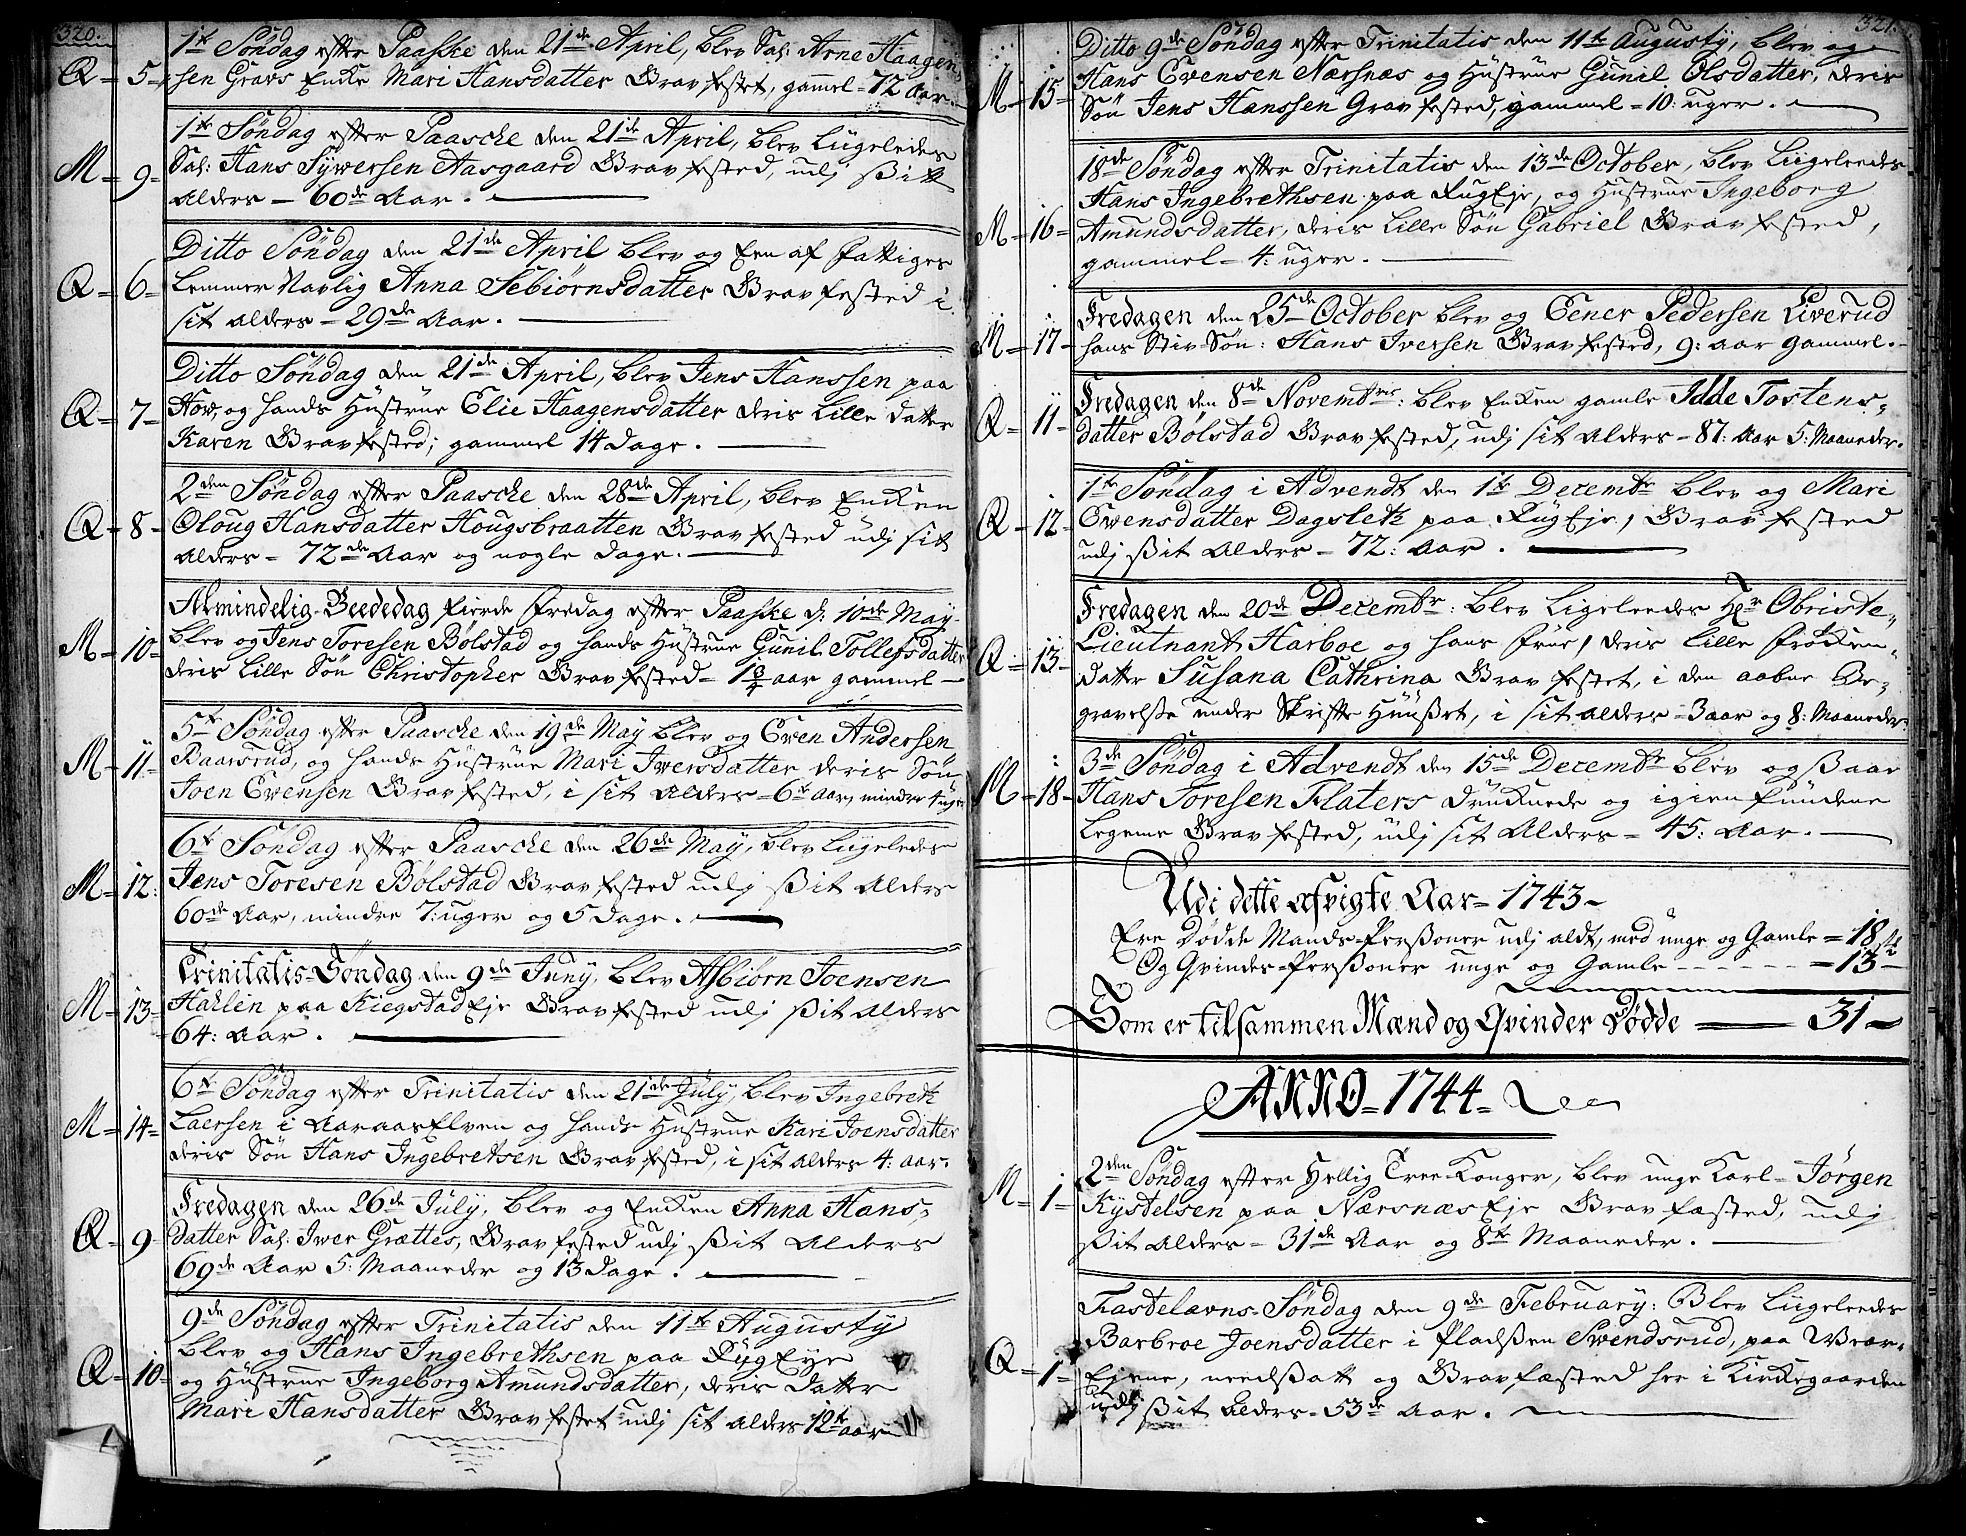 320.
1te Søndag efter Paaske den 21de April, blev Sal: Arne Haagen-
Q = 5 = sen Gravs Enke Mari Hansdatter Gravfestet, gammel = 72 Aar.
1te Søndag efter Paasche den 21de April, blev Liigeledes
M = 9 = Sal: Hans Sywersen Aasgaard Gravfested, udj ßit
Alders = 60de Aar.
Ditto Søndag den 21de April blev og Een af Fattiges
Q = 6 = Lemmer Navlig Anna Sebiørnsdatter Gravfested i
sit alders = 29de Aar.
Ditto Søndag den 21de April, blev Jens Hanssen paa
Q = 7 = How, og hands Hüstrue Elie Haagensdatter deris Lille datter
Karen Gravfested; gammel 14 dage.
2den Søndag efter Paasche den 28de April, blev Enken
Q = 8 = Oloug Hansdatter Hougsbraatten Gravfested udj sit
alders = 72de Aar og nogle dage.
Almindelig-Beededag fierde fredag efter Paaske d: 10de May
M = 10 = blev og Jens Toresen Bølstad og hands Hüstrue Gunil Tollefsdatter
deris Lille Søn Christopher Gravfested = 1 3/4 aar gammel
5te Søndag efter Paasche den 19de May blev og Even Andersen
M = 11 = Baarsrud, og hands Hüstrue Mari Iwersdatter deris Søn
Joen Evensen Gravfested, i sit Alders = 6te Aar, mindre
6te Søndag efter Paasche den 26de May, blev Liigeledes
M = 12: Jens Toresen Bølstad Gravfested udj ßit Alders
60de Aar, mindre 7: uger og 5 dage.
Trinitatis-Søndag den 9de Juny, blev Asbiørn Joensen
M = 13 = Hallin paa Kiegstad Eje Gravfested udj ßit Alders
64: Aar.
6te Søndag efter Trinitatis den 21de July, blev Ingebret
M = 14 = Laersen i Aaraas Elven og hands Hustrue Kari Joensdatter
deris Søn Hans Ingebretsen Gravfested, i sit alders 4: aar.
Fredagen den 26de July, blev og Enken Anna Hans-
Q = 9 = datter Sal: Iwer Grættes, Gravfested udj ßit Alders
69de Aar 5: Maaneder og 13 dage.
9de Søndag efter Trinitatis den 11te Augusty
blev og Hans Ingebrethsen paa Ryg Eye
Q = 10 = og Hustrue Ingeborg Amundsdatter, deris datter
Mari Hansdatter Gravfestet udj sit alders 12te aar
321.
Ditto 9de Søndag efter Trinitatis den 11te Augusty, blev og
M = 15 = Hans Evensen Næsnæs og Hüstrue Gunil Olsdatter, deris
Søn Jens Hanssen Gravfested, gammel = 10: uger.
18de Søndag efter Trinitatis den 13de October, blev Liigeleedes
Hans Ingebrethsen paa Rug Eje, og Hustrue Ingeborg
M = 16 = Amundsdatter, deris Lille Søn Gabriel Gravfested,
gammel = 4: uger.
Fredagen den 25de October blev og Eener Pedersen Liverud
M = 17 = hans Stiv-Søn: Hans Iversen Gravfested, 9: aar gammel.
Fredagen den 8de Novembris: blev Enken gamle Idde Tostens-
Q = 11 = datter Bølstad Gravfested, udj sit Alders = 87: Aar 5: Maaneder.
1te Søndag i Advendt den 1te Decembr blev og Mari
Q = 12 = Evensdatter Dagslet paa Ryg Eje, Gravfested
udj ßit Alders = 72: Aar.
Fredagen den 20de Decembr: blev Ligeleedes Hr Obriste-
Lieutnant Harboe og hans frue, deris lille frøken-
Q = 13 = datter Susana Cathrina Gravfestet, i den aabne Be-
gravelße under Skrifte Hüüßet, i sit alders = 3 aar og 8: Maaneder
3de Søndag i Advendt den 15de Decembr blev og Saar
M = 18 = Hans Toresen Flaters drucknede og igien fundene
Legeme Gravfested, udj sit Alders = 45: Aar.
Udi dette afvigte Aar = 1743
Ere Dødde Mands-Perßoner udj aldt, med unge og Gamle = 18
Og Qvindes-Perßoner unge og Gamle = 13
Som er tilsammen Mænd og Qvinder Dødde 31
ANNO = 1744 =
2den Søndag efter Hellig Tree Konger, blev unge Karl = Jørgen
M = 1 = Kystelsen paa Næsnæs Eje Gravfæsted, udj
ßit alders = 31de Aar og 8te Maaneder.
Fastelavns-Søndag den 9de February: Blev Liigeleedes
Barbroe Joensdatter i Pladßen Swendsrud, paa Wear-
Q = 1 = Ejene, needßatt og Gravfæsted her i Kirkegaarden
udj ßit Alders = 53de Aar.